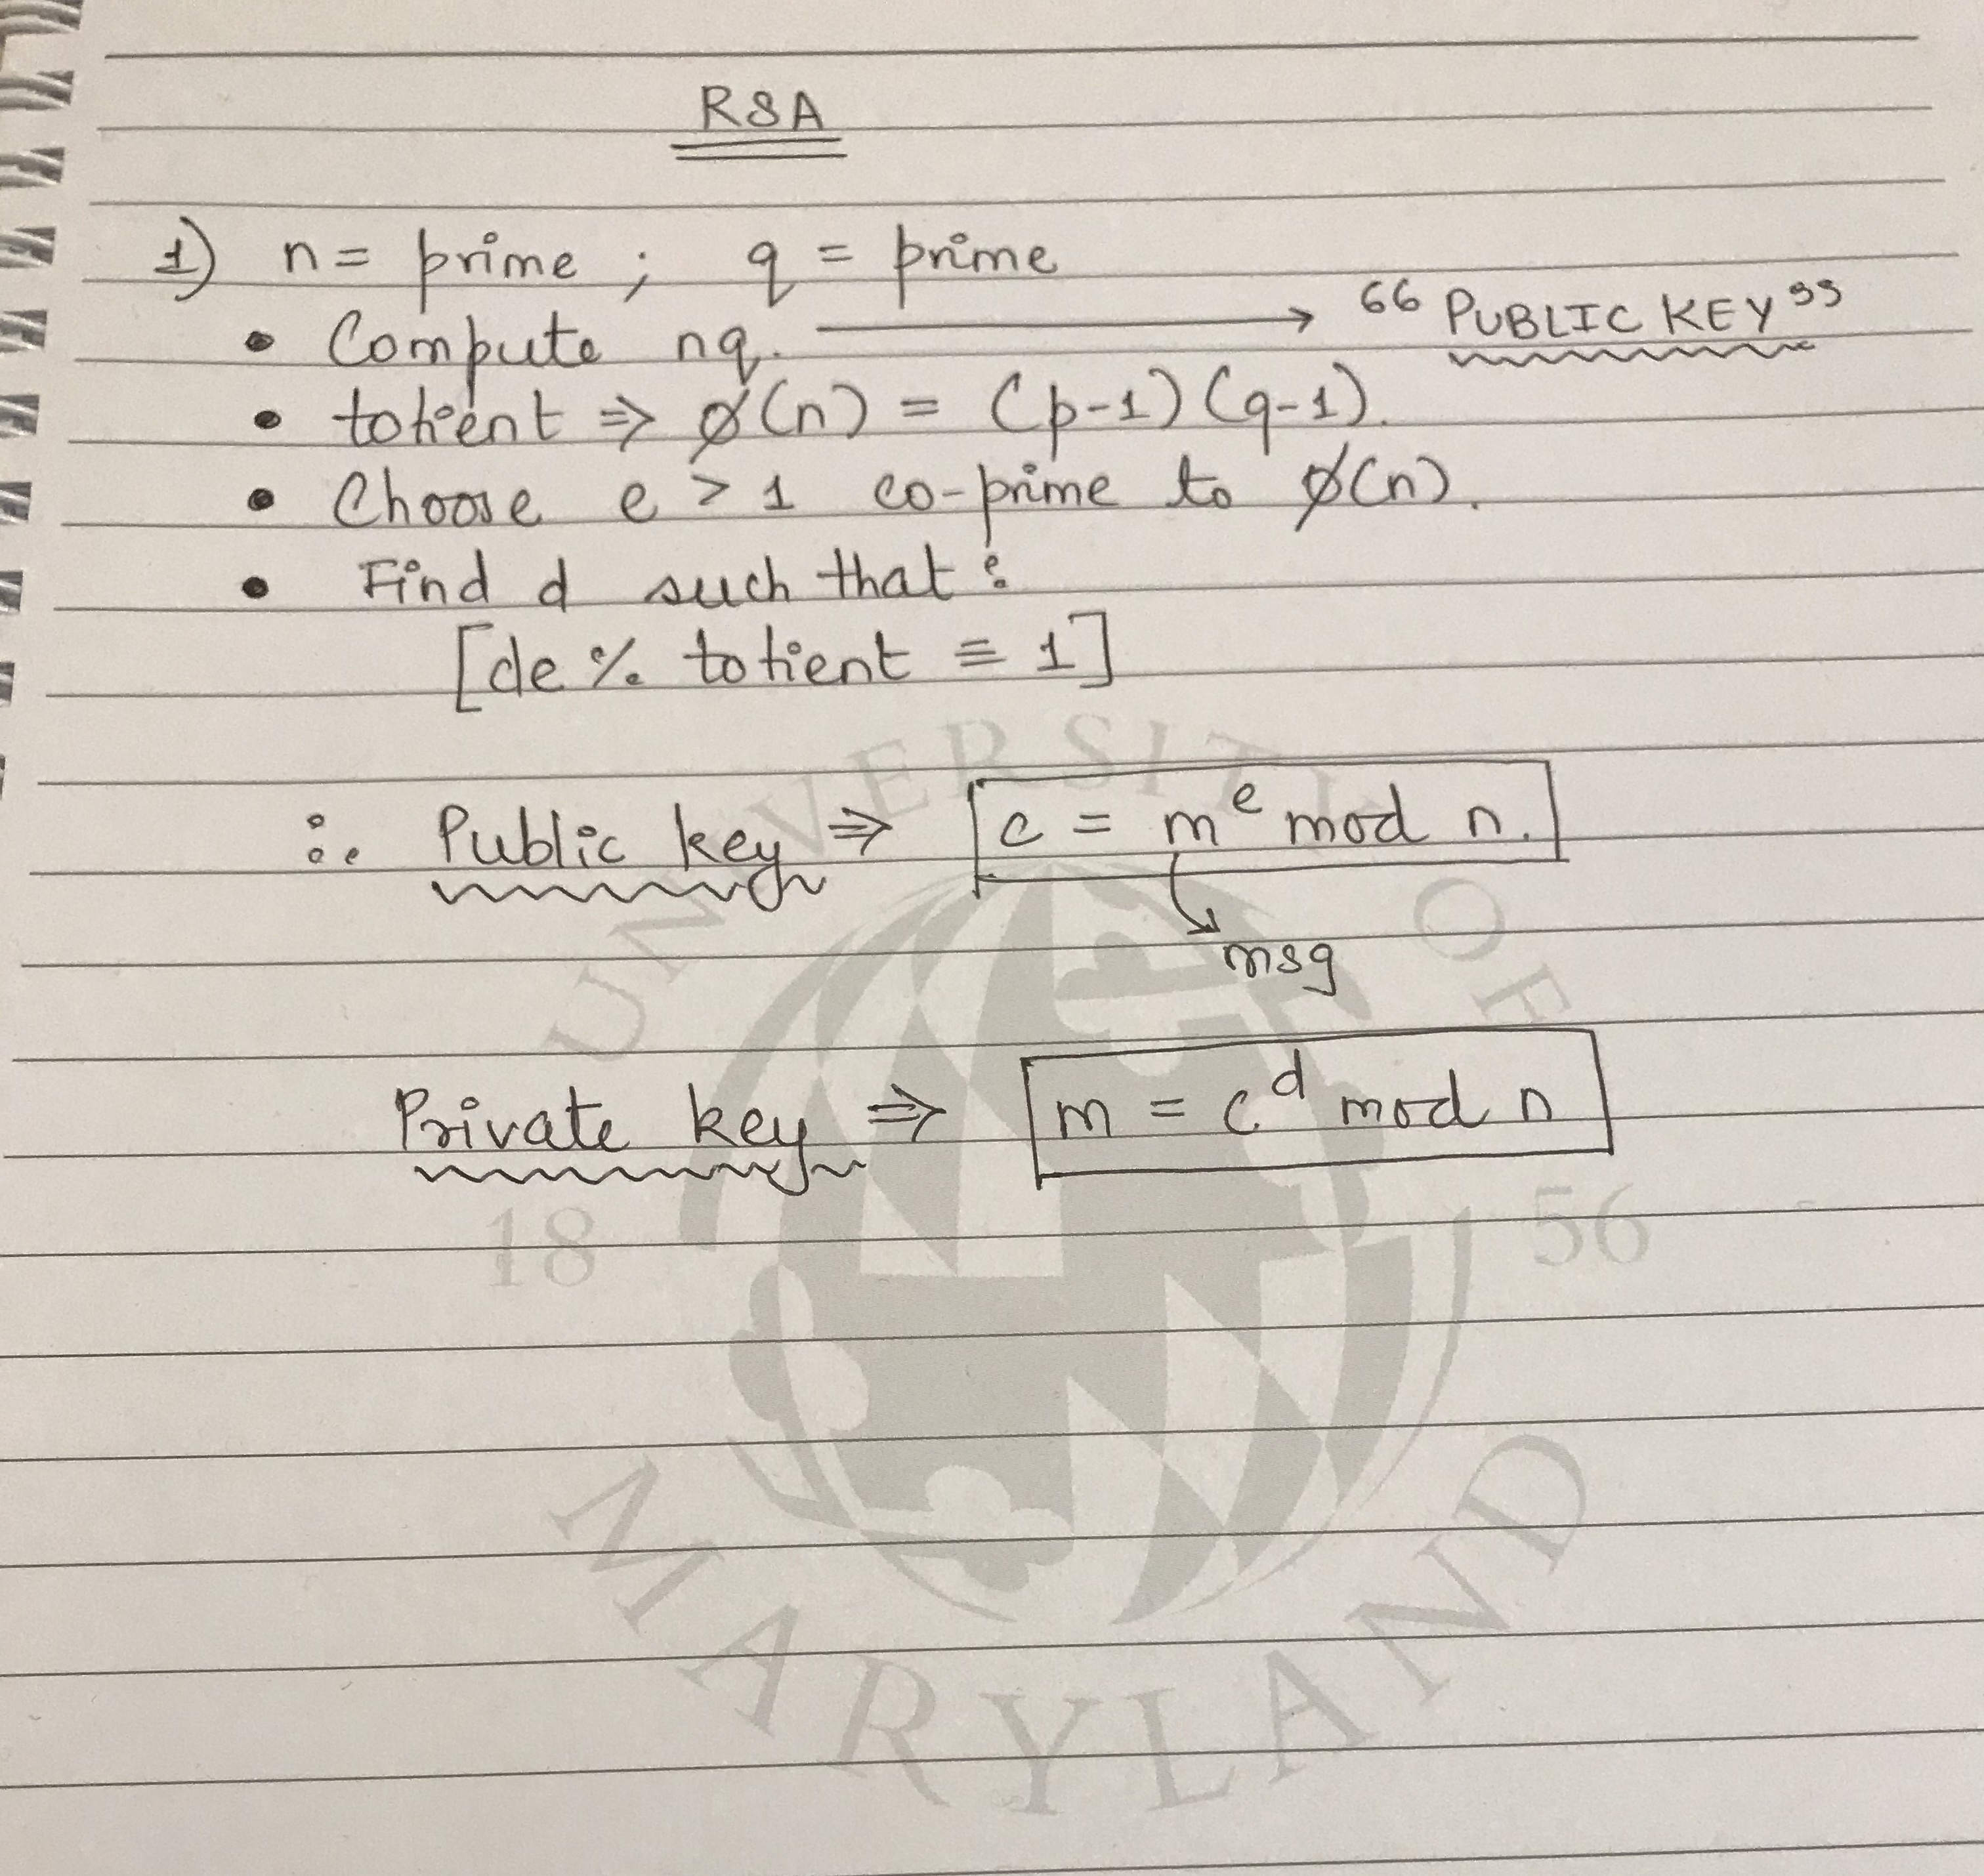 RSA
1) n = prime ; q = prime
• Compute nq. ⟶ “PUBLIC KEY”
• totient ⇒ ϕ(n) = (p-1)(q-1).
• Choose e > 1 co-prime to ϕ(n).
• Find d such that :
[de % totient ≡ 1]
∴ Public key ⇒ c = m^e mod n.
msg
Private key ⇒ m = c^d mod n
UNIVERSITY OF
18 56
MARYLAND